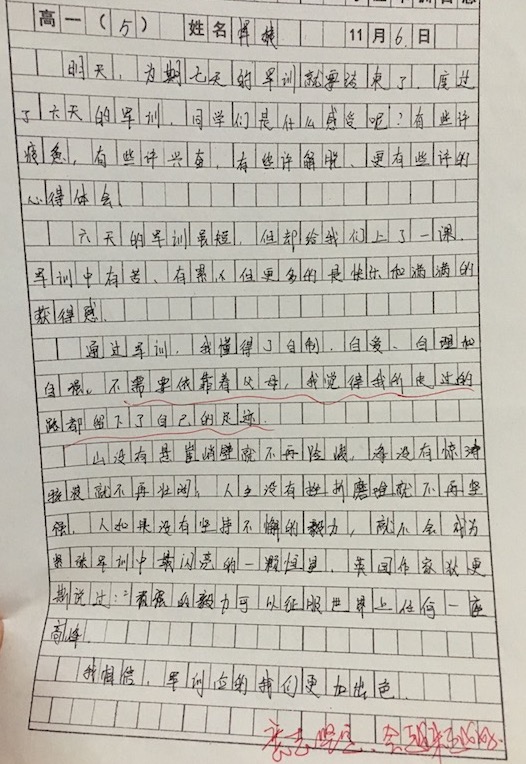 高一(5) 姓名 11月6日
明天,为期七天的军训就要结束了,度过
了六天的军训,同学们是什么感受呢?有些许
疲惫,有些许兴奋,有些许解脱、更有些许的
心得体会.
六天的军训虽短,但却给我们上了一课.
军训中有苦、有累,但更多的是快乐和满满的
获得感.
通过军训,我懂得了自制、自爱、自理和
自强。不需要依靠着父母,我觉得我所走过的
路都留下了自己的足迹.
山没有悬崖峭壁就不再险峻,海没有惊涛
骇浪就不再壮阔,人生没有挫折磨难就不再坚
强,人如果没有坚持不懈的毅力,就不会成为
紧张军训中最闪亮的一颗恒星,英国作家狄更
斯说过:"顽强的毅力可以征服世界上任何一座
高峰.
我相信,军训后的我们更加出色.
意志坚定,会